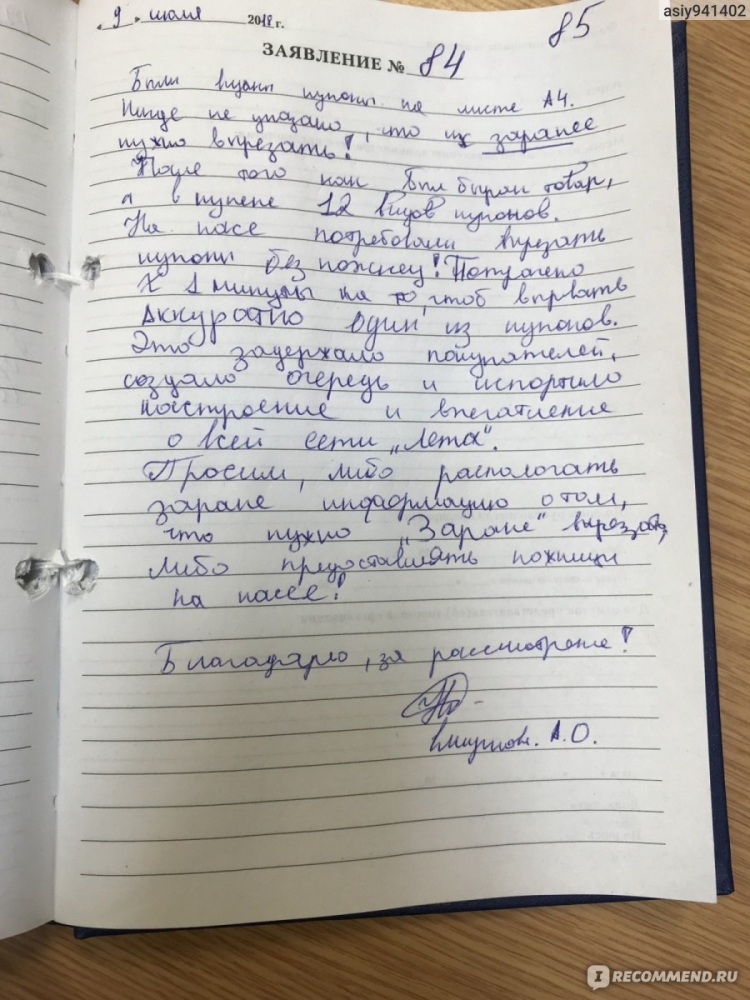 asiy941402
„ 9 " июля 2018 г.
85
ЗАЯВЛЕНИЕ № 84
Были купоны на листе А4.
Нигде не указано, что их заранее
нужно вырезать!
После того как был выбран товар,
а в купене 12 видов купонов.
На касе потребовали вырезать
купоны без ножниц! Потрачено
1 минуты на то, чтоб вырвать
аккуратно один из купонов.
Это задержало покупателей,
создало очередь и испортило
настроение и впечатление
о всей сети „Лета".
Просим, либо распологать
заране информацию о том,
что нужно „Заране" вырезать,
либо предоставлять ножницы
на кассе!
Благодарю, за рассмотрение!
А.О.
IRECOMMEND.RU